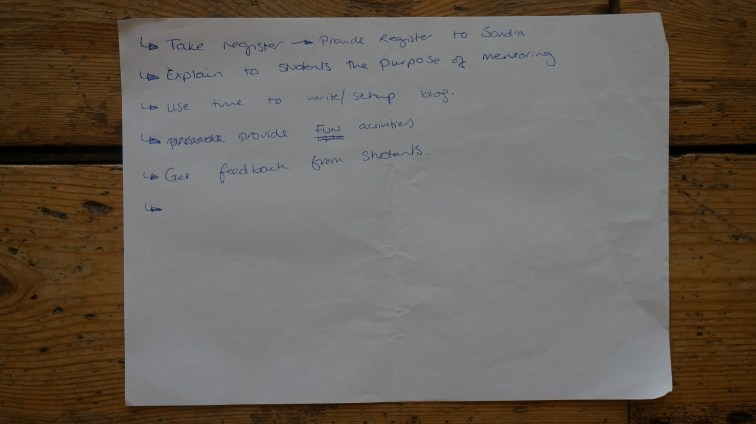 ↳ Take register → Provide Register to Sandra
↳ Explain to students the purpose of mentoring
↳ use time to write/setup blog.
↳ provide FUN activities
↳ Get feedback from students.
↳